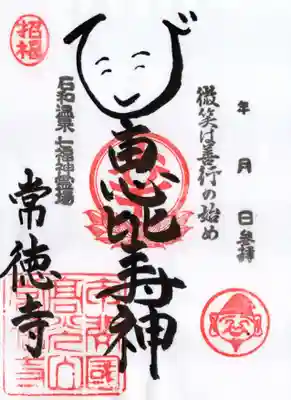 年 月 日参拝
微笑は善行の始め
恵比寿神
石和温泉七福神霊場
常徳寺
招福